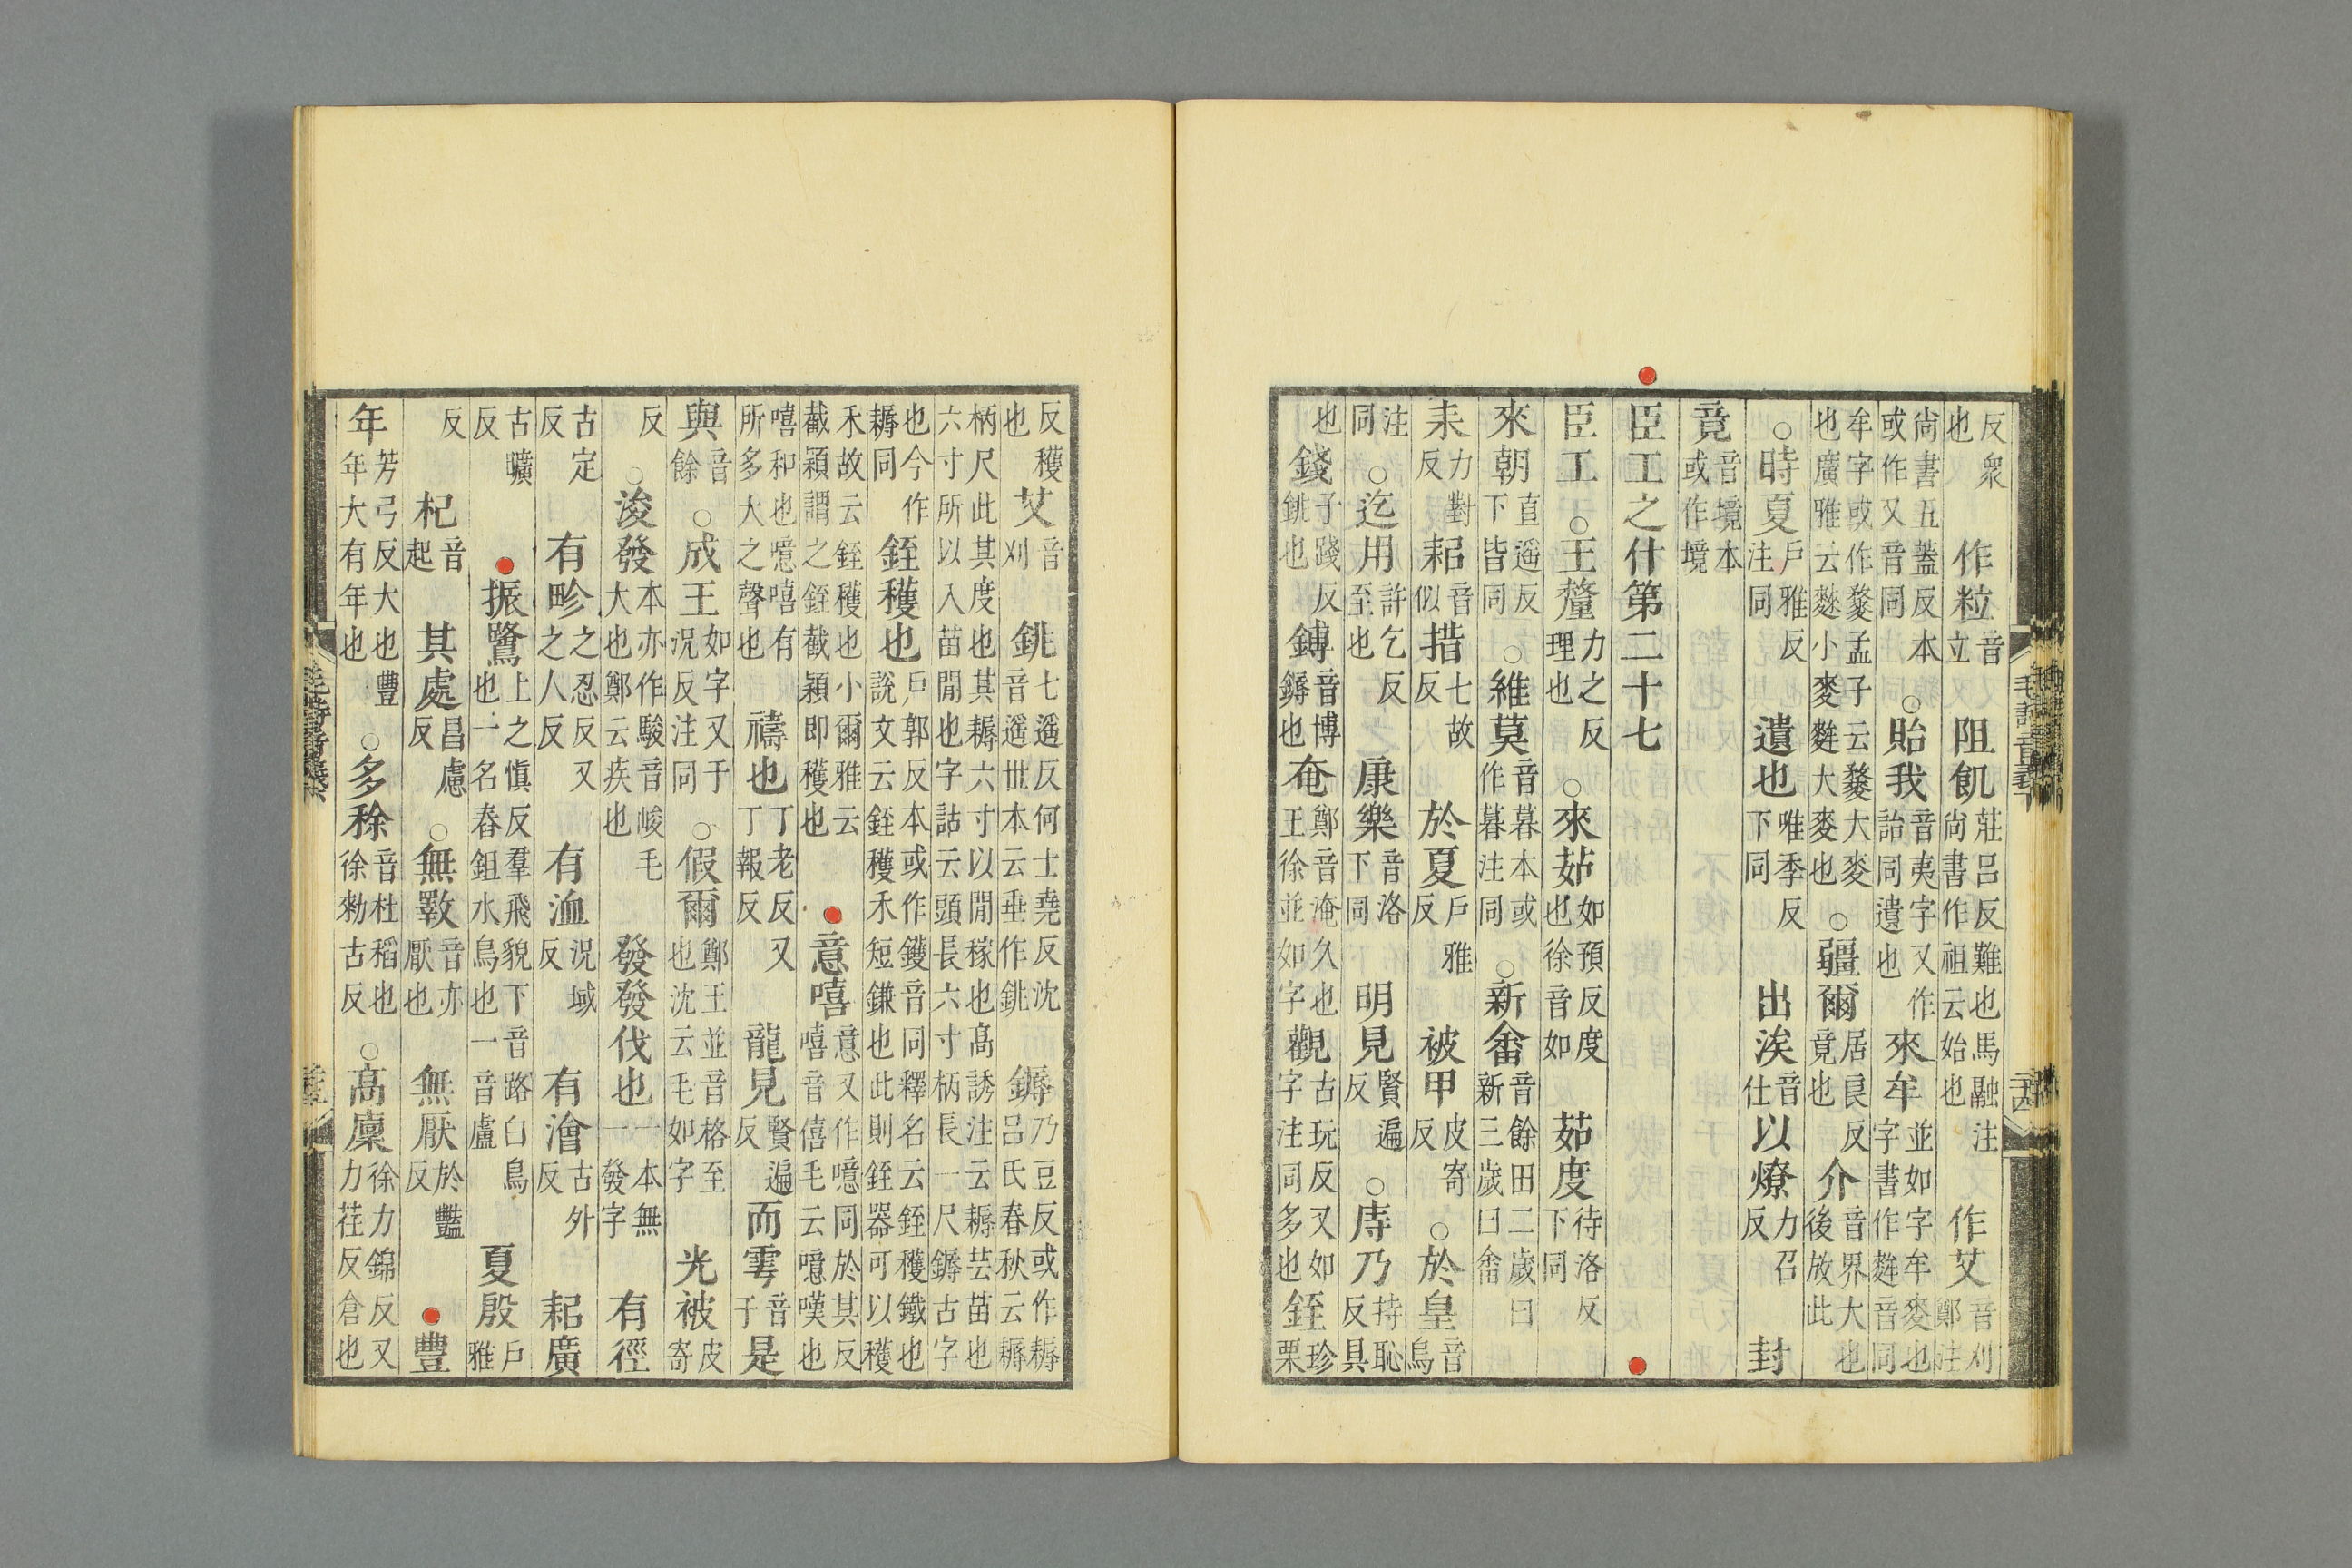 反衆也　作粒音立　阻飢莊吕反難也馬融注尚書作祖云始也　作艾音刈鄭注
尚書五蓋反本或作又音同○貽我音夷字又作詒同遺也　來牟並如字牟麥也字書作麰音同
牟字或作䴳孟子云䴳大麥也廣雅云䴬小麥麰大麥也○疆爾居良反竟也　介音界大也後放此
○時夏戶雅反注同　遺也唯季反下同　出涘音仕以燎力召反　封
竟音境本或作境
臣工之什第二十七
臣工○王釐力之反理也○來茹如預反度也徐音如　茹度待洛反下同
來朝直遥反下皆同○維莫音暮本或作暮注同○新畬音餘田二歲曰新三歲曰畬
耒力對反耜音似措七故反　於夏戶雅反　被甲皮寄反○於皇音烏
注同○迄用許乞反至也　康樂音洛下同　明見賢遍反○庤乃持恥反具
也錢子踐反銚也鎛音博鎒也奄鄭音淹久也王徐並如字觀古玩反又如字注同多也銍珍栗
反穫也艾音刈　銚七遥反何士堯反沈音遥丗本云垂作銚　鎒乃豆反或作耨吕氏春秋云耨
柄尺此其度也其耨六寸以閒稼也高誘注云耨芸苗也六寸所以入苗閒也字詁云頭長六寸柄長一尺鎒古字
也今作耨同　銍穫也戶郭反本或作鑊音同釋名云銍穫鐵也說文云銍穫禾短鎌也此則銍器可以穫
禾故云銍穫也小爾雅云截穎謂之銍截穎即穫也　意嘻意又作噫同於其反嘻音僖毛云噫嘆也
嘻和也噫嘻有所多大之聲也　禱也丁老反又丁報反　龍見賢遍反而雩音于是
與音餘○成王如字又于況反注同○假爾鄭王並音格至也沈云毛如字　光被皮寄
反○浚發本亦作駿音峻毛大也鄭云疾也　發發伐也一本無一發字　有徑
古定反　有畛之忍反又之人反　有洫況域反　有澮古外反　耜廣
古曠反　振鷺上之慎反羣飛貌下音路白鳥也一名舂鉏水鳥也一音盧　夏殷戶雅
反　杞音起　其處昌慮反○無斁音亦厭也　無厭於豔反　豐
年芳弓反大也豐年大有年也○多稌音杜稻也徐勑古反○高廩徐力錦反又力荏反倉也